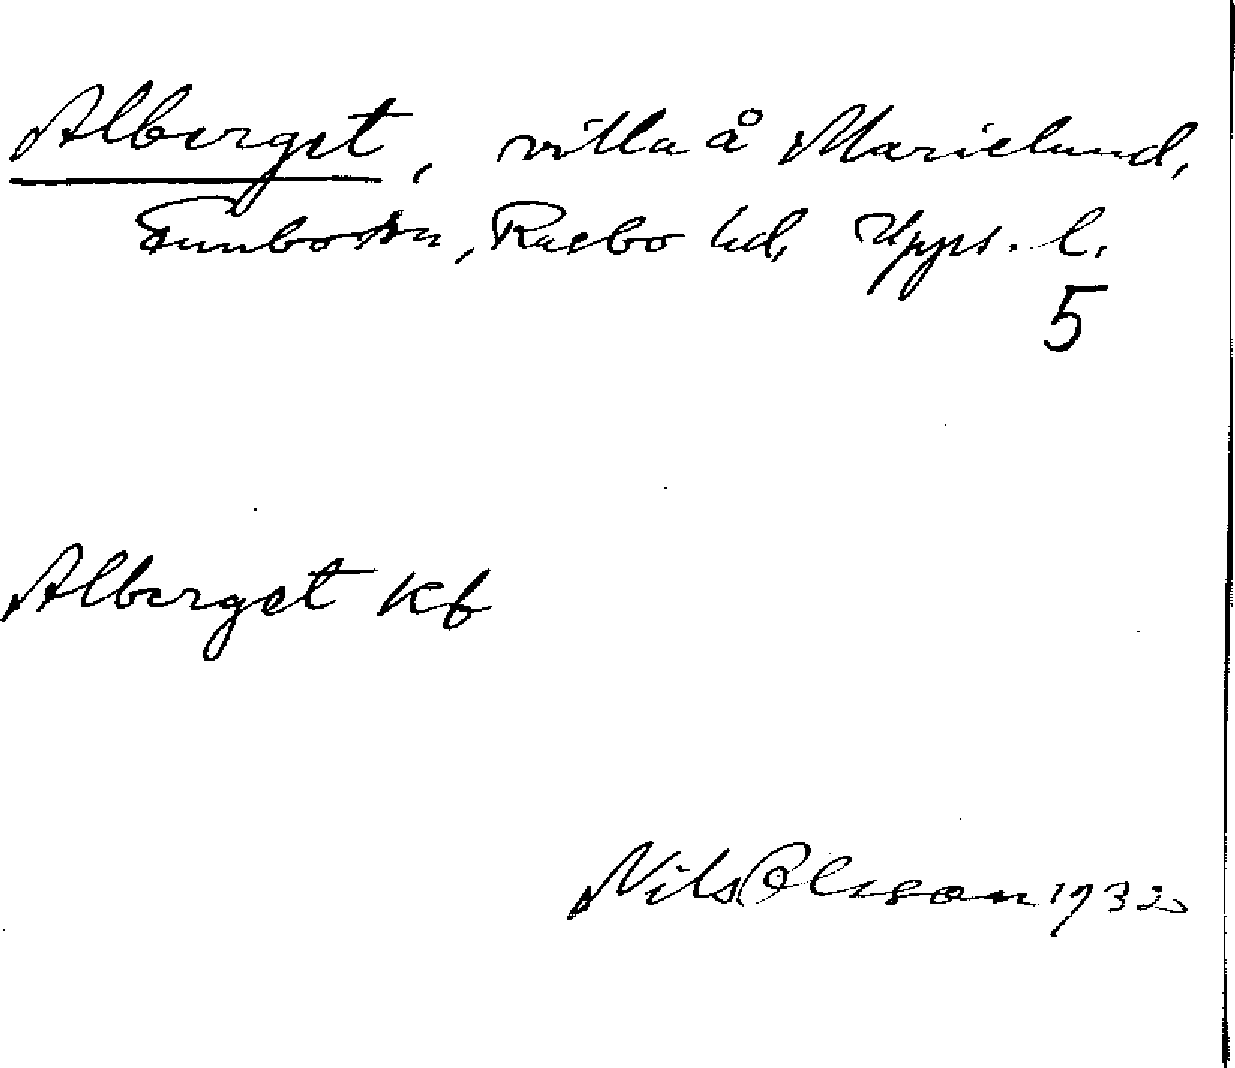 Alberget, villa å Marielund,
Funbo sn, Rasbo hd, Upps. l.
5
Alberget Kb
Nils Olsson 1932